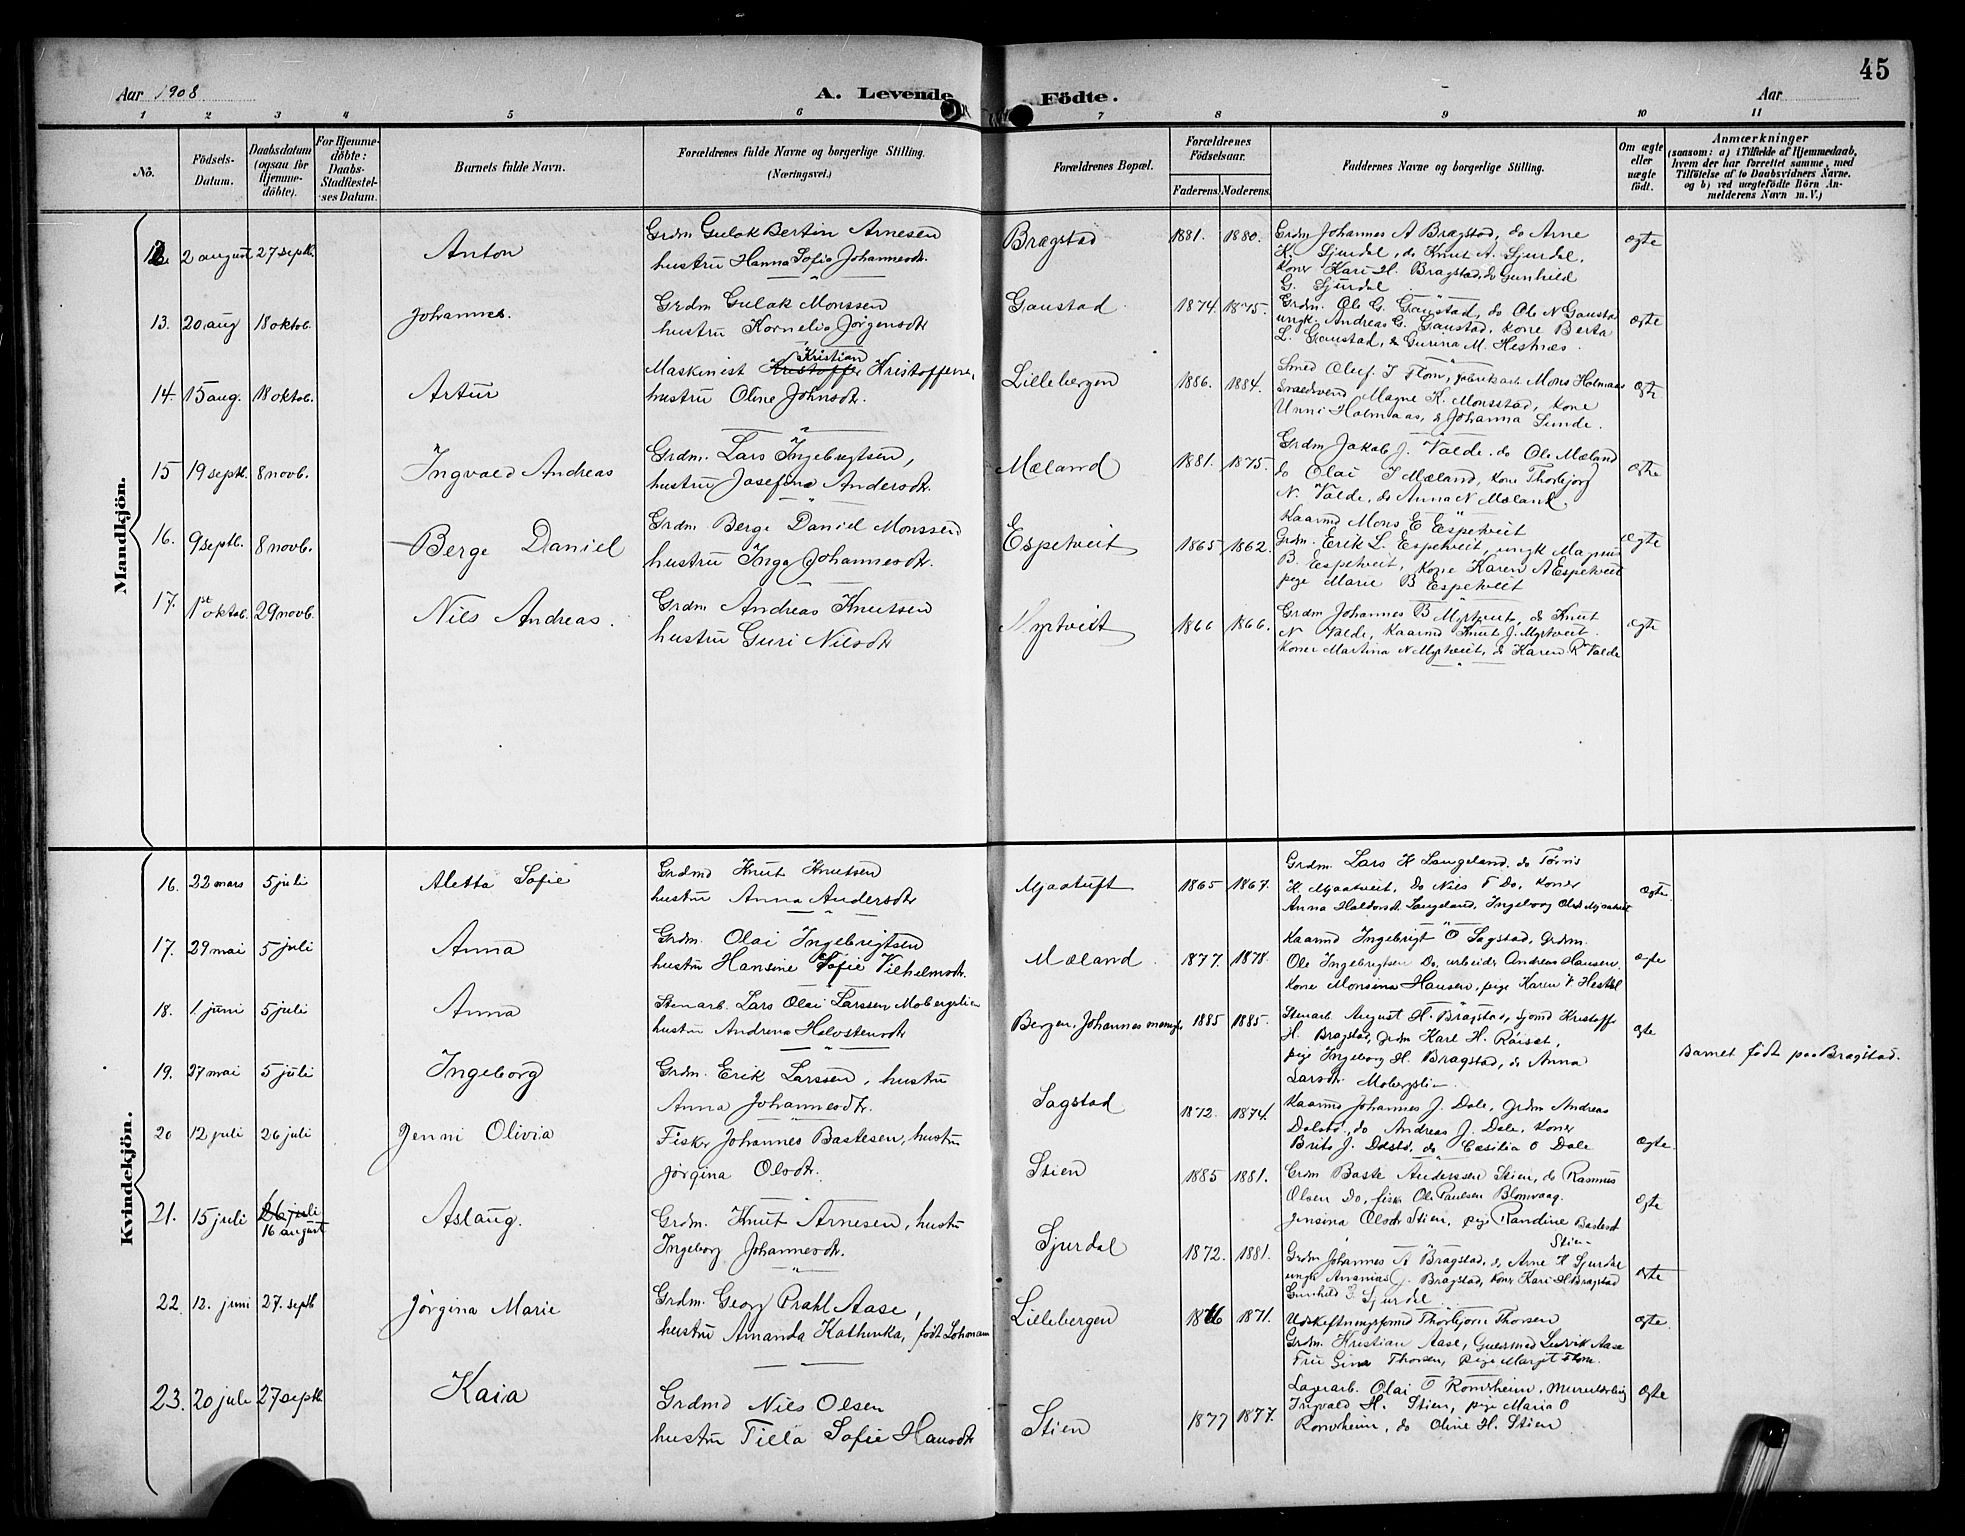 45
Aar 1908
A. Levende Födte.
Aar
1 2 3 4 5 6 7 8 9 10 11
No.
Födsels-
Datum.
Daabsdatum
(ogsaa for
Hjemme-
döbte).
For Hjemme-
döbte:
Daabs-
Stadfæstel-
ses Datum.
Barnets fulde Navn.
Forældrenes fulde Navne og borgerlige Stilling.
(Næringsvei.)
Forældrenes Bopæl.
Forældrenes
Födselsaar.
Faderens. Moderens.
Faddernes Navne og borgerlige Stilling.
Om ægte
eller
uægte
födt.
Anmærkninger
(saasom: a) i Tilfælde af Hjemmedaab,
hvem der har forrettet samme, med
Tilföielse af to Daabsvidners Navne.
og b) ved uægtefödte Börn An-
melderens Navn m. V.)
Mandkjön.
12. 2 august 27 septb. Anton
Grdm Gulak Bertin Arnesen
hustru Hanna Sofie Johannesdtr.
Bragstad 1881. 1880.
Grdm Johannes A Bragstad, do Arne
K. Sjurdal, do Knut A. Sjurdal,
koner Kari H. Bragstad, do Gunhild
G. Sjurdal
ægte
13. 20 aug 18 oktob. Johannes.
Grdm Gulak Monssen
hustru Kornelia Jörgensdtr
Gaustad 1874 1875.
Grdm. Ole G. Gaustad, do Ole N Gaustad
ungk. Andreas G. Gaustad, kone Berta
L. Gaustad, & Gurina M. Hestnæs.
ægte
14. 15 aug. 18 oktob. Artur
Kristian
Maskinist Kristoffer Kristoffersen,
hustru Oline Johnsdtr.
Lillebergen 1886. 1884.
Smed Oluf I Flom, fabriksarb. Mons Holmaas
Magne K. Monsstad, kone
Unni Holmaas, & Johanna Sunde.
ægte
15 19 septb. 8 novb. Ingvald Andreas
Grdm. Lars Ingebrigtsen,
hustru Josefine Andersdtr.
Mæland 1881. 1875.
Grdm Jakob J. Valde, do Ole Mæland
do Olai I Mæland, kone Thorbjorg
N. Valde, do Anna N Mæland
ægte
16. 9 septb. 8 novb. Berge Daniel
Grdm Berge Daniel Monssen
hustru Inga Johannesdtr.
Espetveit 1865 1862.
Kaarmd Mons E Espetveit
Grdm. Erik L. Espetveit, ungk Magnus
B. Espetveit, Kone Karen A Espetveit
pige Marie B Espetveit
ægte
17. 1st oktob. 29 novb. Nils Andreas.
Grdm Andreas Knutsen
hustru Guri Nilsdtr
Myrtveit 1866 1866.
Grdm Johannes B Myrtveit, do Knut
N Valde, Kaarmd Knut J. Myrtveit.
Koner Martina N Myrtveit, do Karen R Valde
ægte
Kvindekjön.
16. 22 mars 5 juli Aletta Sofie
Grdmd Knut Knutsen
hustru Anna Andersdtr
Mjaatuft 1865 1867.
Grdm. Lars K Langeland, do Tørris
K. Mjaatveit, Do Nils T Do, Koner
Anna Haldorsdt Langeland, Ingeborg Olsdt Mjaatveit
ægte
17. 29 mai 5 juli Anna
Grdm. Olai Ingebrigtsen
hustru Hansine Sofie Vilhelmsdtr.
Mæland. 1877. 1878.
Kaarmd Ingebrigt O Sagstad, Grdm.
Ole Ingebrigtsen Do, arbeider Andreas Hansen.
Kone Monsena Hansen, pige Karen V Hestdal
ægte
18. 1 juni 5 juli Anna
Stenarb. Lars Olai Larssen Mobergslien
hustru Andrena Halvstensdtr
Bergen, Johannes menigh. 1885 1885.
Stenarb. August H. Bragstad, Gjomd Kristoffer
H. Bragstad, Grdm Karl H. Röiset,
pige Ingeborg H. Bragstad, do Anna
Larsdtr. Mobergslien
ægte
Barnet födt paa Bragstad.
19. 27 mai 5 juli Ingeborg
Grdm. Erik Larssen, hustru
Anna Johannesdtr.
Sagstad 1872. 1874.
Kaarmd Johannes J. Dale, Grdm Andreas
Dalstö, do Andreas J. Dale, Koner
Brita J. Dalstö, do Cæsilia O Dale
ægte.
20 12 juli 26 juli Jenni Olivia
Fisker Johannes Bastesen, hustru
Jörgina Olsdtr.
Stien 1885 1881.
Grdm Baste Anderssen Stien, do Rasmus
Olsen Do, fisker Ole Paulsen Blomvaag.
Jensina Olsdtr Stien, pige Randine Bastesdt
Stien
ægte
21. 15 juli 26 juli
16 august
Aslaug.
Grdm. Knut Arnesen, hustru
Ingeborg Johannesdtr.
Sjurdal 1872. 1881.
Grdm Johannes A Bragstad, do Arne K Sjurdal
ungk Ananias J. Bragstad, koner Kari H Bragstad
Gunhild G Sjurdal
ægte
22. 12. juni 27. septb Jörgina Marie
Grdm. Georg Prahl Aase,
hustru Amanda Kathinka, födt
Lillebergen 1876 1871.
Udskiftningsformd Thorbjörn Thorsen
Grdm. Kristian Aase, Guldsmed Ludvik Aase
Fru Gina Thorsen, pige Margit Flom.
ægte.
23. 20 juli 27 septb. Kaia
Grdmd Nils Olsen
hustru Tilla Sofie Hansdtr
Stien 1877 1877.
Lagerarb. Olai O Romrheim, Murerlærling
Ingvald H. Stien, pige Maria O
Romrheim, do Oline H. Stien
ægte